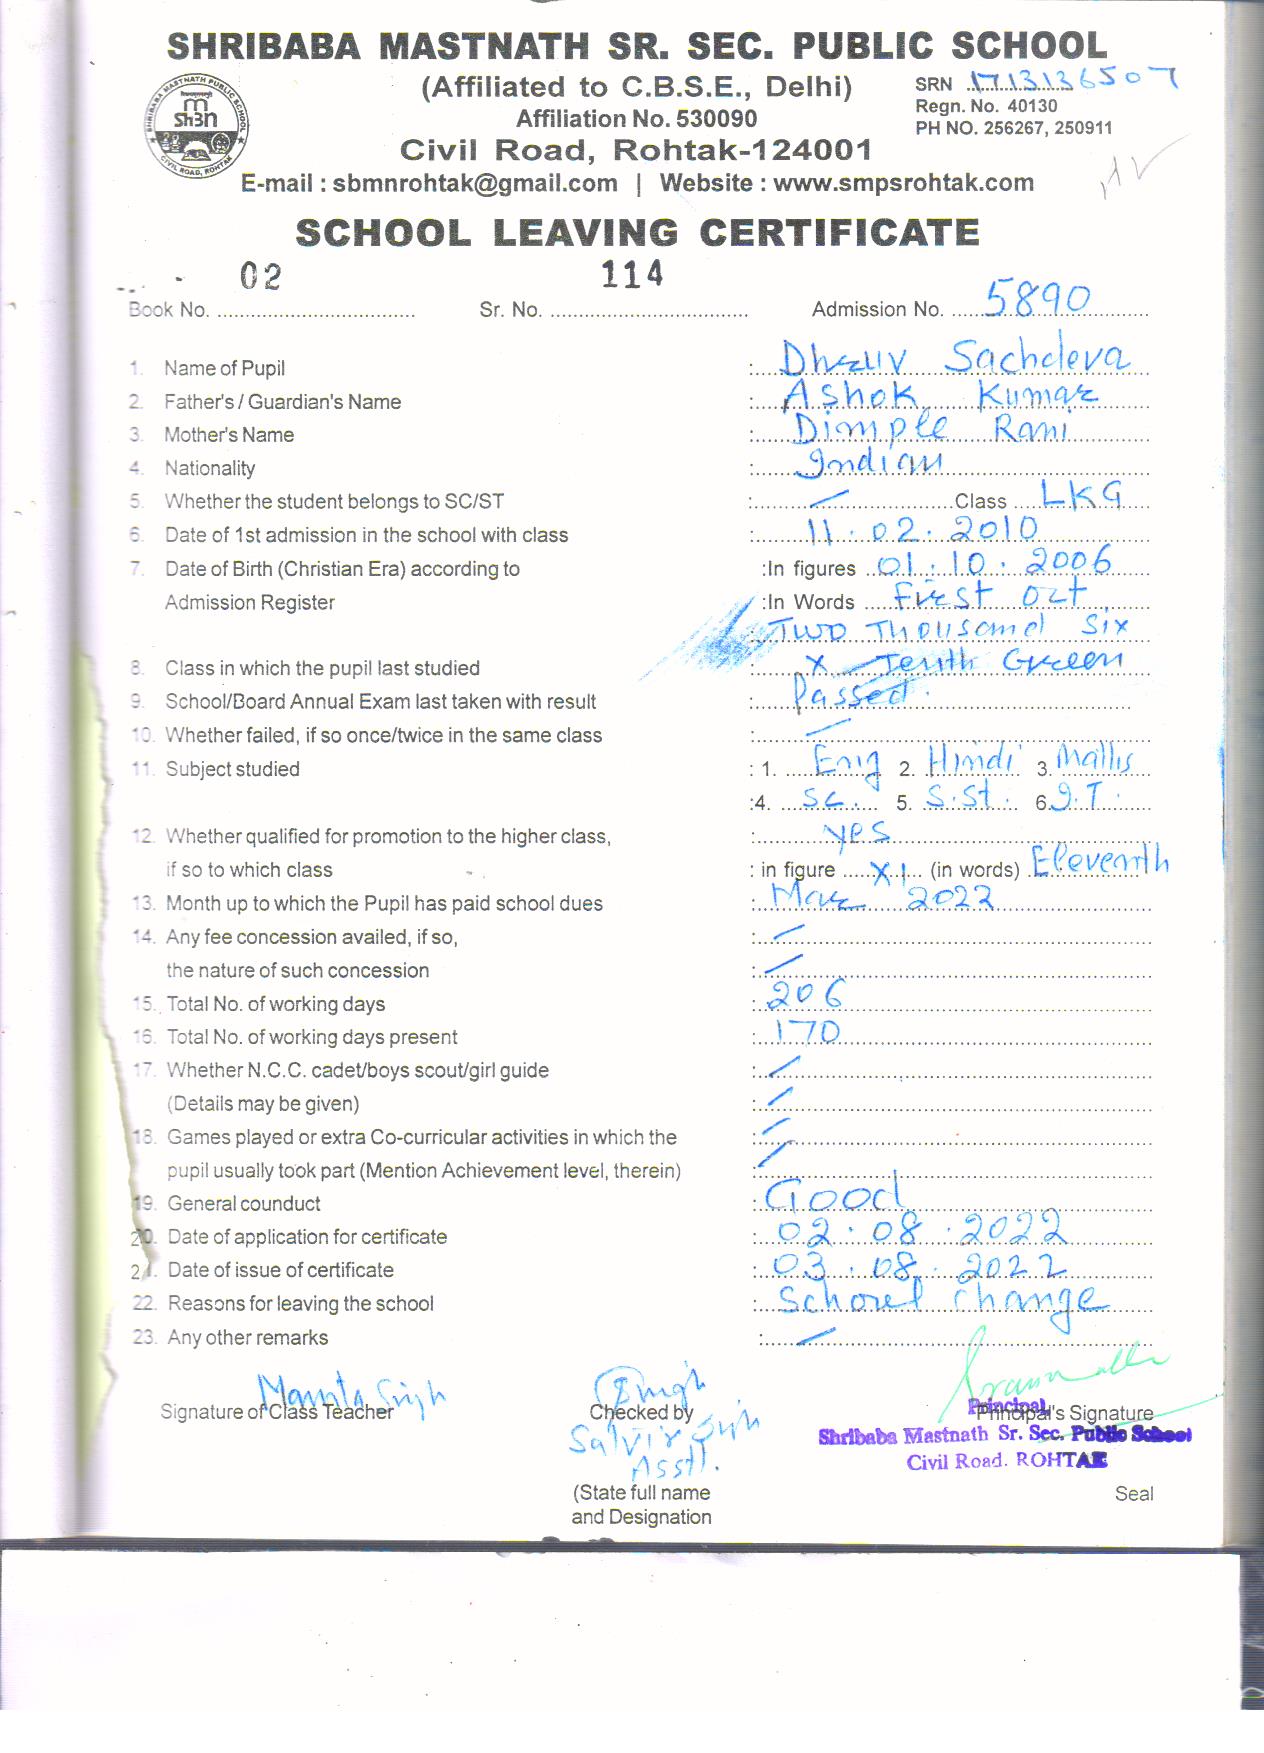 SHRIBABA MASTNATH SR. SEC. PUBLIC SCHOOL
(Affiliated to C.B.S.E., Delhi)
SRN 1713136507
Affiliation No. 530090
Regn. No. 40130
PH NO. 256267, 250911
Civil Road, Rohtak-124001
E-mail : sbmnrohtak@gmail.com | Website : www.smpsrohtak.com
SCHOOL LEAVING CERTIFICATE
Book No. 02 Sr. No. 114 Admission No. 5890
1. Name of Pupil : Dhruv Sachdeva
2. Father's / Guardian's Name : Ashok Kumar
3. Mother's Name : Dimple Rani
4. Nationality : Indian
5. Whether the student belongs to SC/ST : — Class LKG
6. Date of 1st admission in the school with class : 11.02.2010
7. Date of Birth (Christian Era) according to :In figures 01.10.2006
Admission Register :In Words First Oct
Two Thousand Six
8. Class in which the pupil last studied : X — Tenth Green
9. School/Board Annual Exam last taken with result : Passed.
10. Whether failed, if so once/twice in the same class : —
11. Subject studied : 1. Eng 2. Hindi 3. Maths
:4. Sc. 5. S.St. 6. I.T.
12. Whether qualified for promotion to the higher class, : yes
if so to which class : in figure XI (in words) Eleventh
13. Month up to which the Pupil has paid school dues : Mar 2022
14. Any fee concession availed, if so, : —
the nature of such concession : —
15. Total No. of working days : 206
16. Total No. of working days present : 170
17. Whether N.C.C. cadet/boys scout/girl guide : —
(Details may be given) : —
18. Games played or extra Co-curricular activities in which the : —
pupil usually took part (Mention Achievement level, therein) : —
19. General counduct : Good
20. Date of application for certificate : 02.08.2022
21. Date of issue of certificate : 03.08.2022
22. Reasons for leaving the school : School change
23. Any other remarks : —
Mamta Singh
Signature of Class Teacher Checked by Principal's Signature
Principal
Shribaba Mastnath Sr. Sec. Public School
Civil Road. ROHTAK
Asstt.
(State full name Seal
and Designation